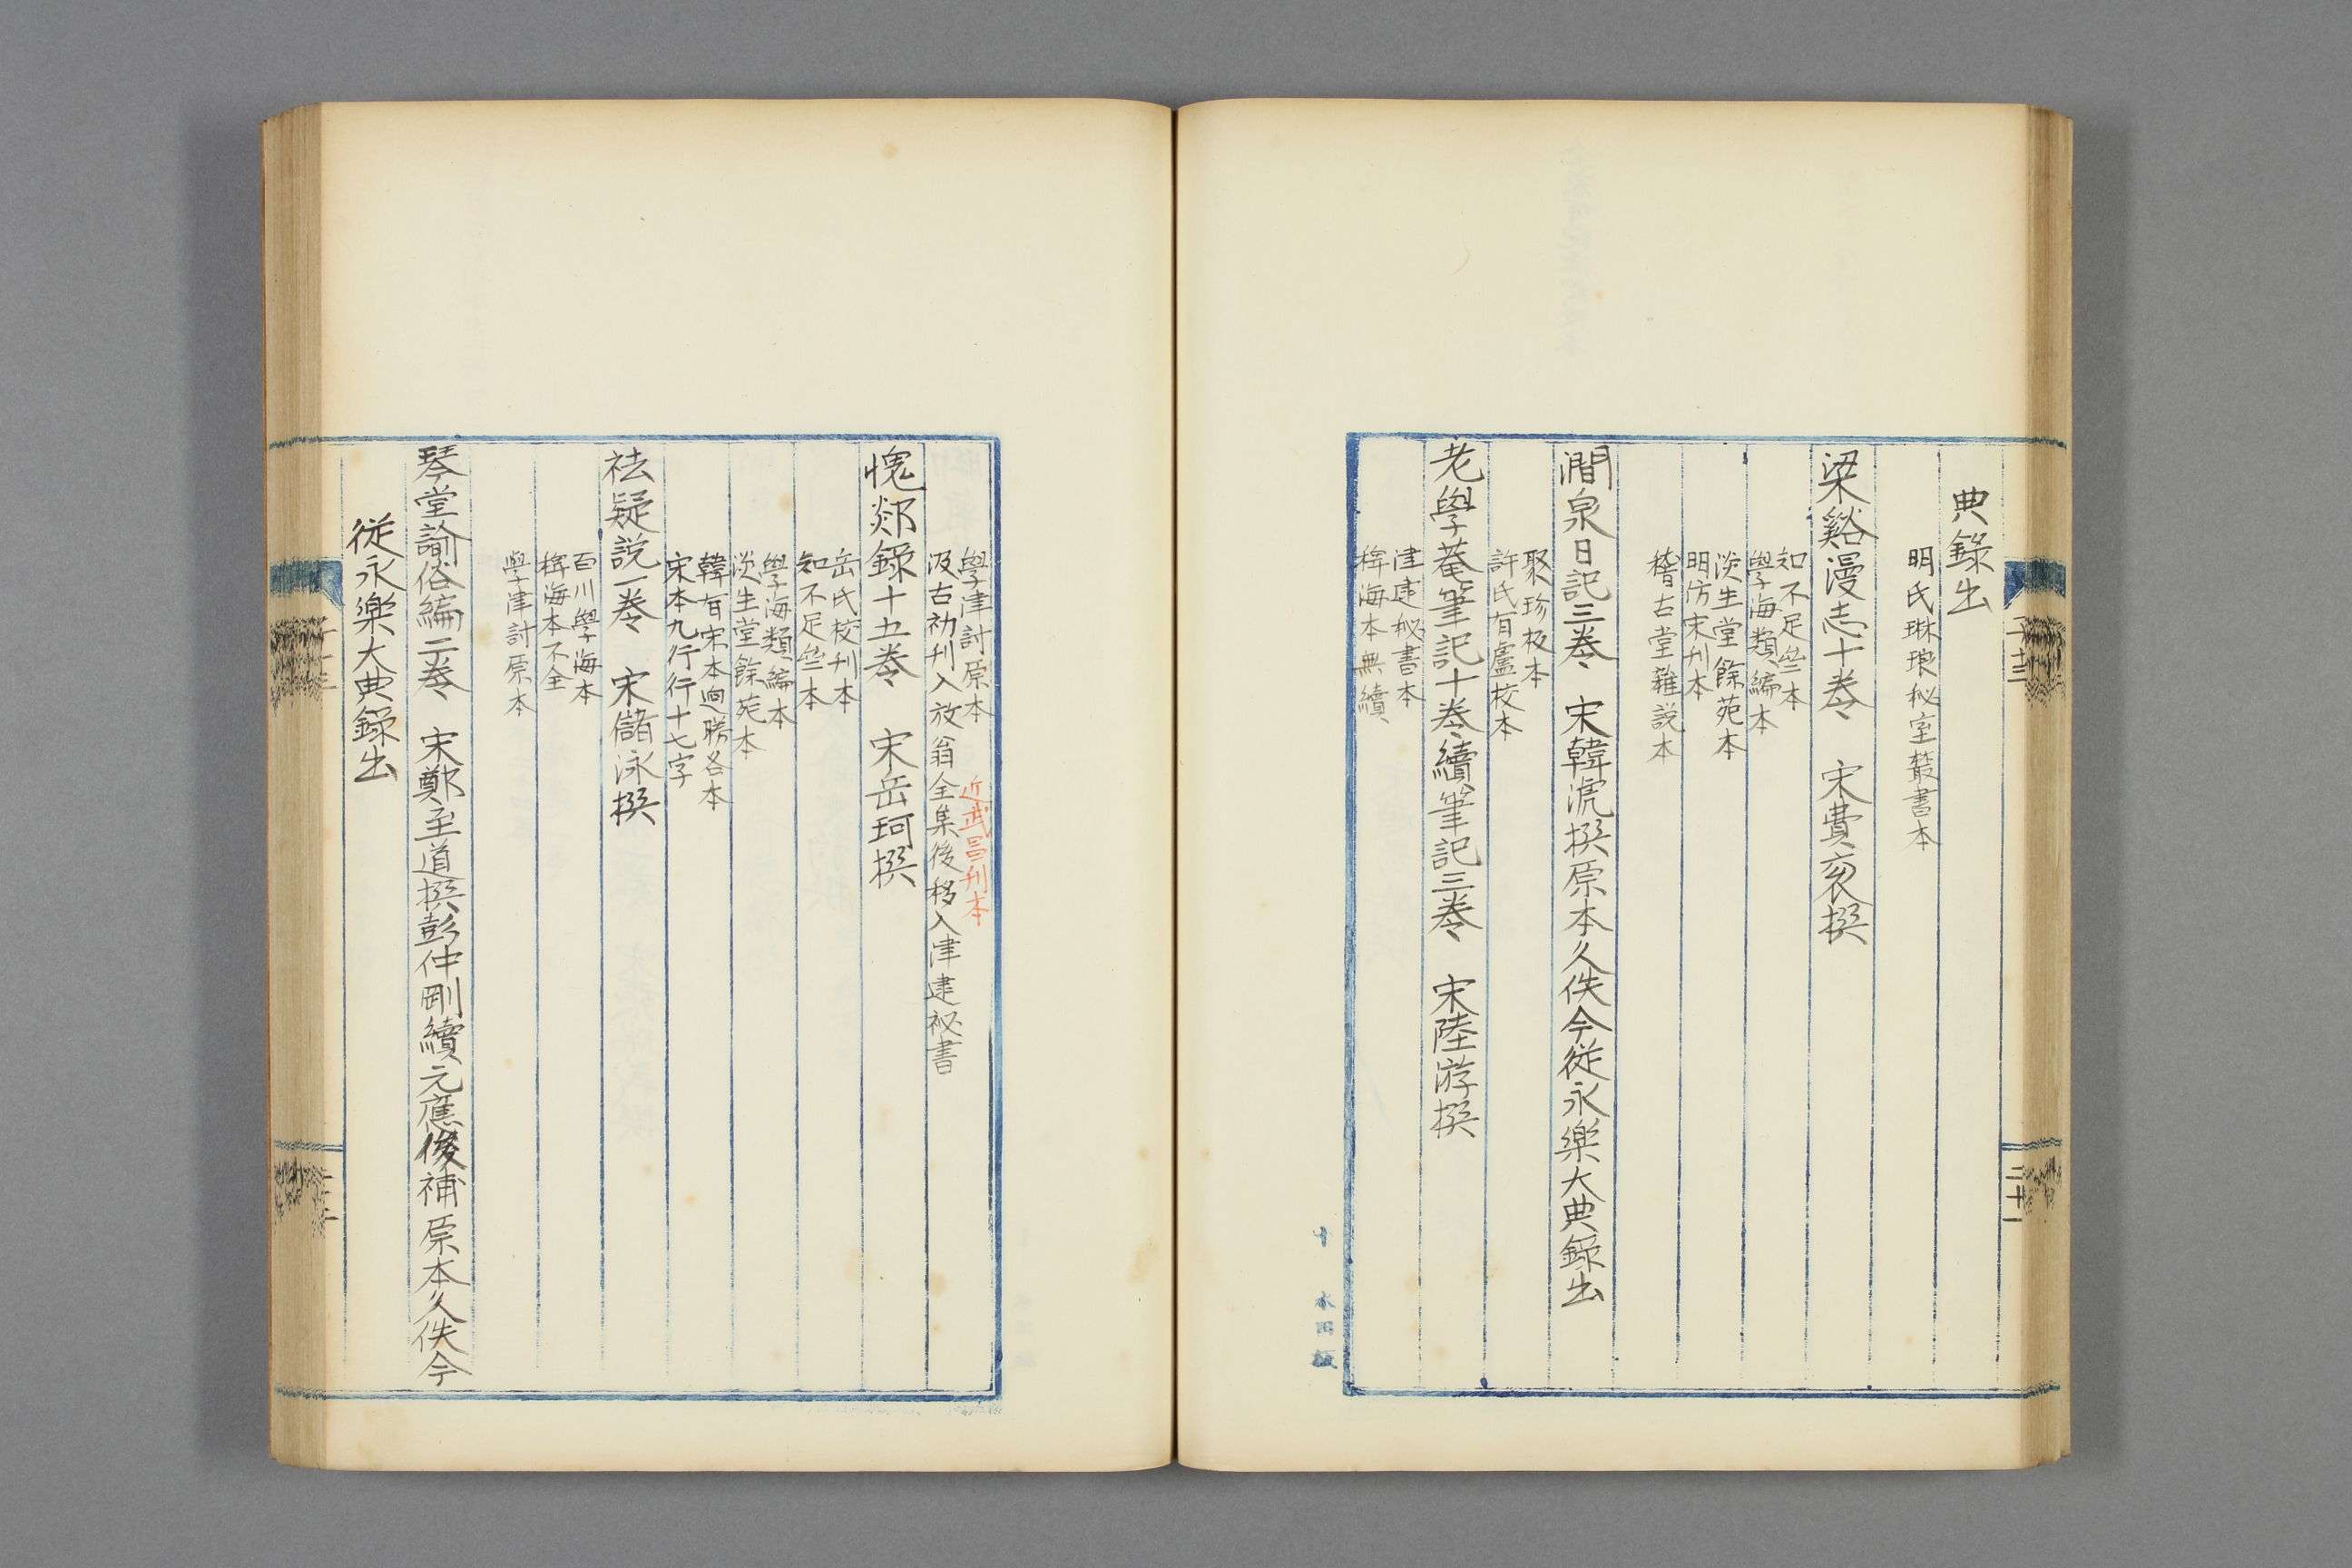 典錄出
明氏琳琅秘室叢書本
梁谿漫志十卷　宋費袞撰
知不足齋本
學海類編本
淡生堂餘苑本
明仿宋刊本
稽古堂雜說本
澗泉日記三卷　宋韓淲撰原本久佚今從永樂大典錄出
聚珍板本
許氏有盧校本
老學菴筆記十卷續筆記三卷　宋陸游撰
津逮秘書本
稗海本無續
學津討原本　近武昌刊本
汲古初刊入放翁全集後移入津逮祕書
愧郯錄十五卷　宋岳珂撰
岳氏校刊本
知不足齋本
學海類編本
淡生堂餘苑本
韓有宋本迥勝各本
宋本九行行十七字
祛疑說一卷　宋儲泳撰
百川學海本
稗海本不全
學津討原本
琴堂諭俗編二卷　宋鄭至道撰彭仲剛續元應俊補原本久佚今
從永樂大典錄出
子十三
三十一